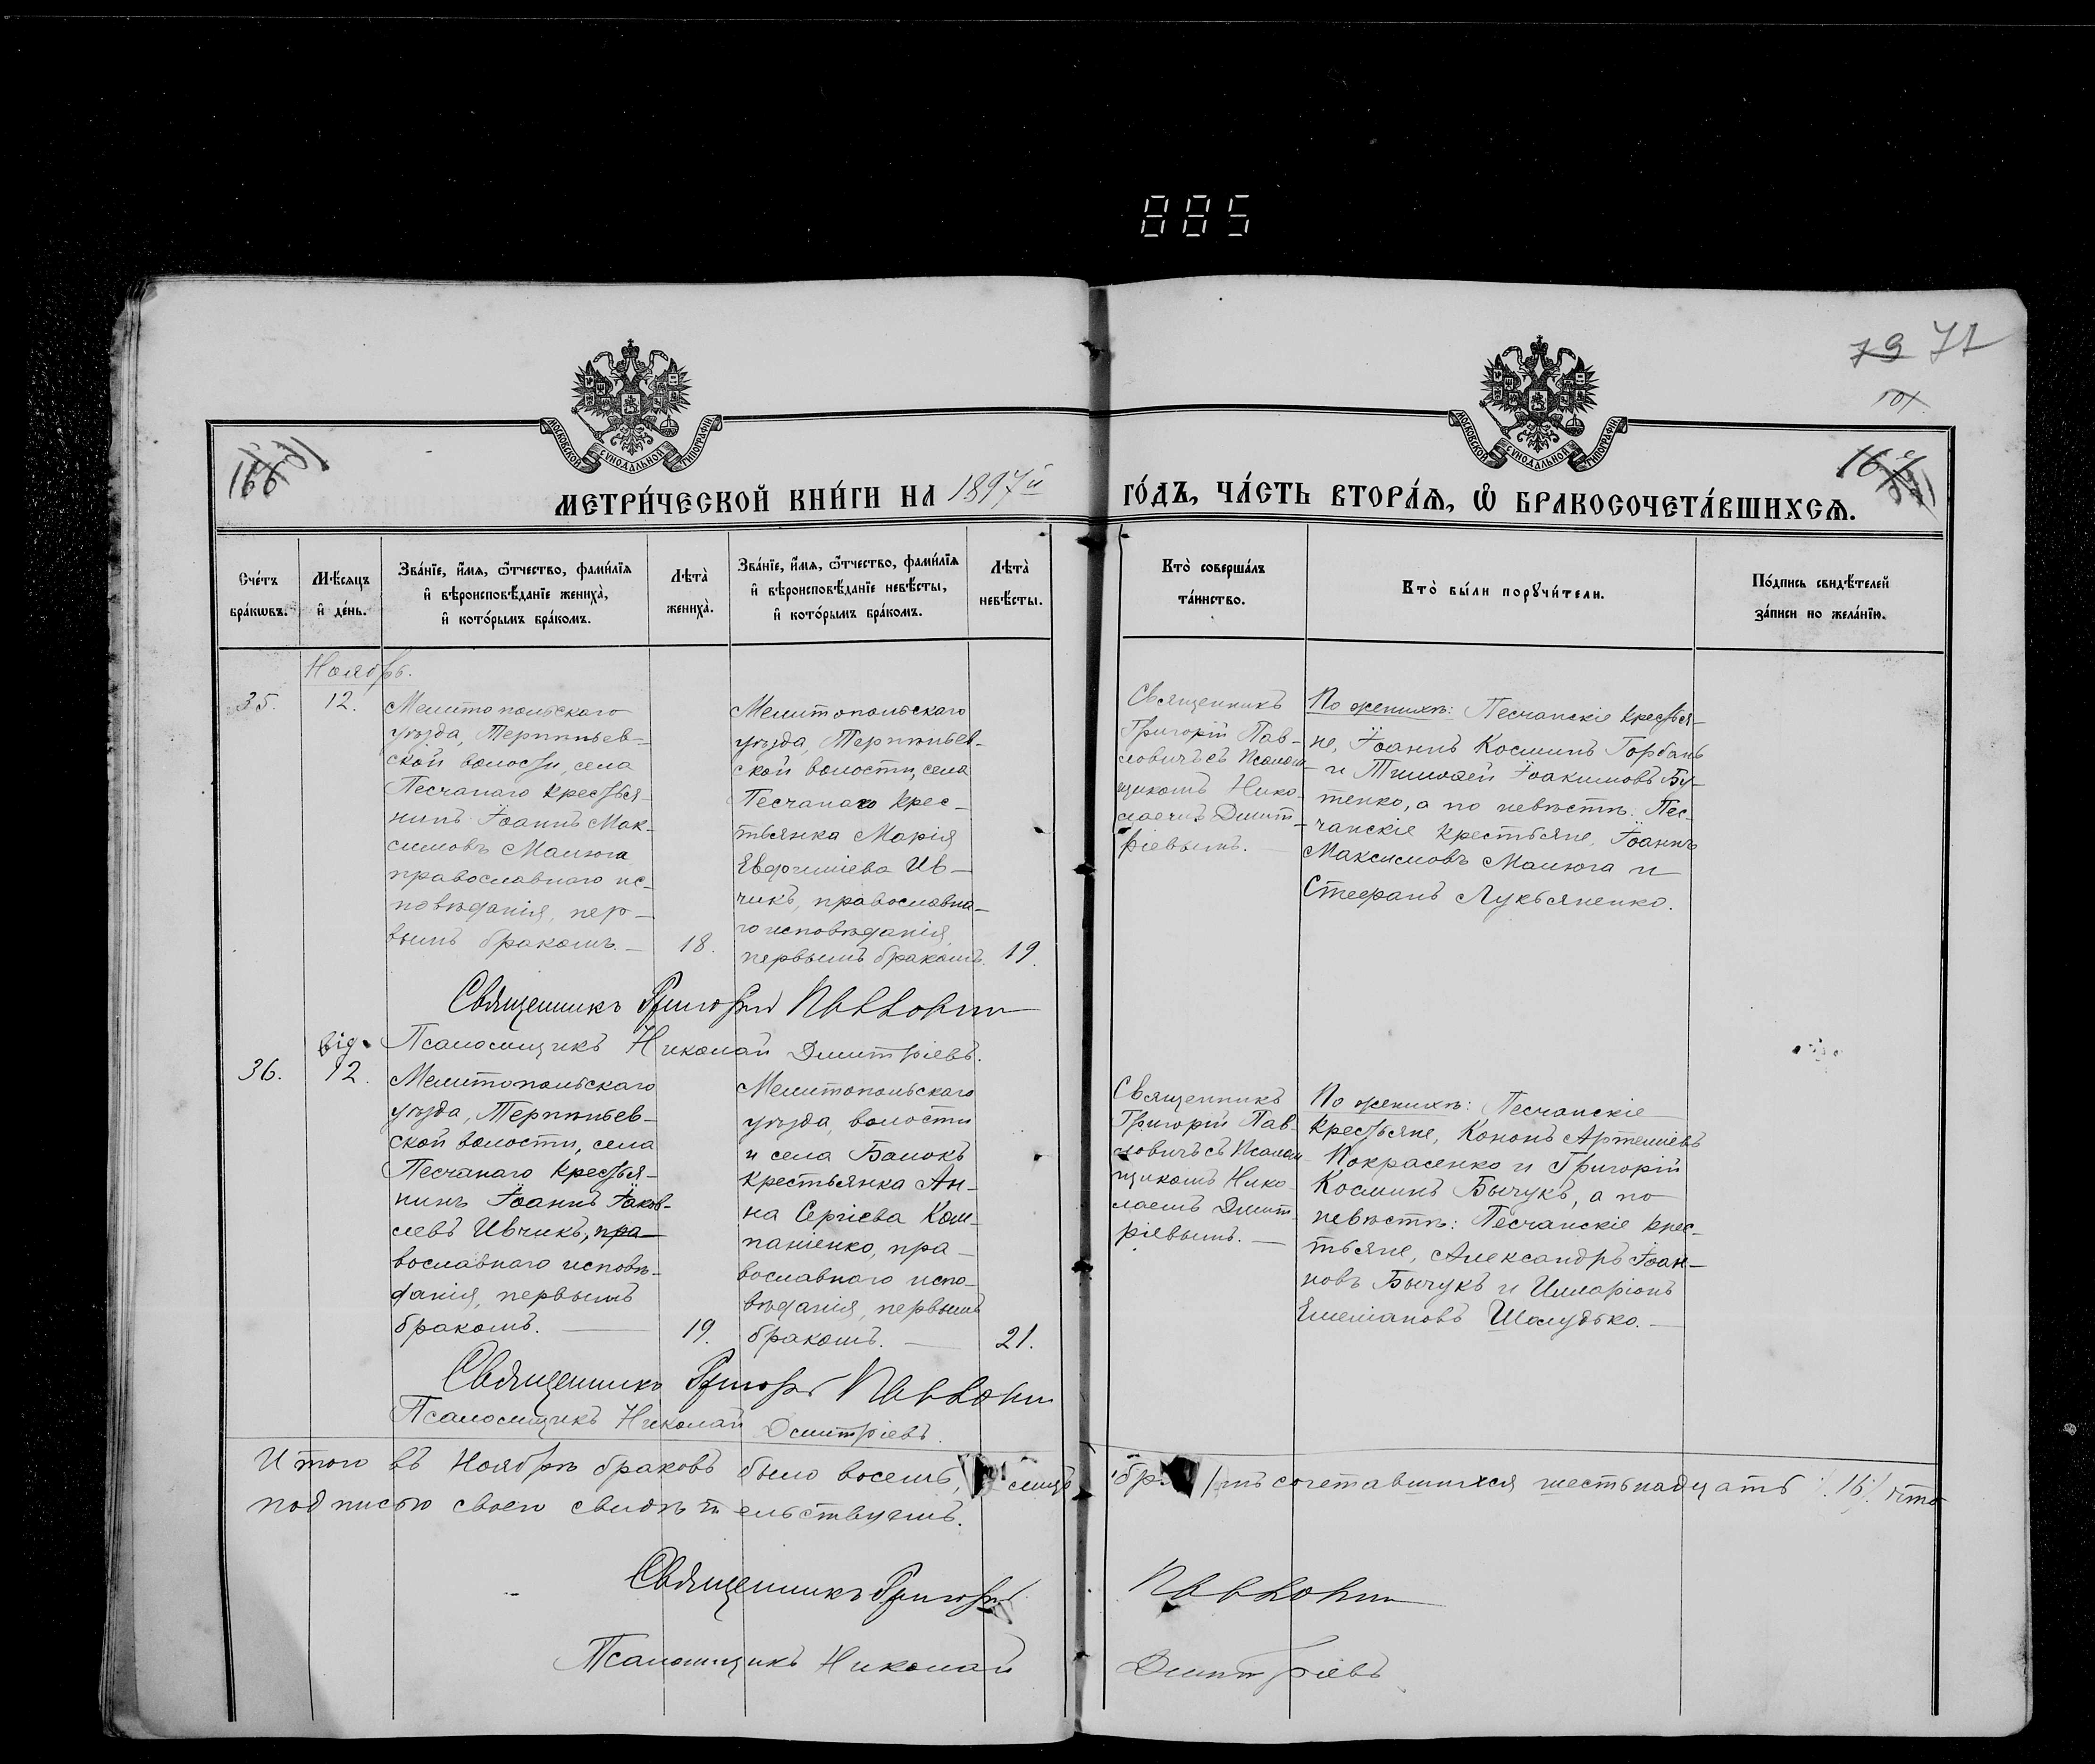 885
79 71
101
МОСКОВСКОЙ СУНОДАЛЬНОЙ ТИПОГРАФІИ
МОСКОВСКОЙ СУНОДАЛЬНОЙ ТИПОГРАФІИ
166
МЕТРИ́ЧЕСКОЙ КНИ́ГИ НА 1897й
ГО́ДЪ, ЧА́СТЬ ВТОРА́Ѧ, Ѿ БРАКОСОЧЕТА́ВШИХСѦ.
Сче́тъ бра́кѡвъ.
Мѣ́сяцъ и҆ де́нь.
Зва́нїе, и҆́мя, ѻ҆́тчество, фами́лїя
и҆ вѣроисповѣ́данїе жениха̀,
и҆ кото́рымъ бра́комъ.
Лѣта̀ жениха̀.
Зва́нїе, и҆́мя, ѻ҆́тчество, фами́лїя
и҆ вѣроисповѣ́данїе невѣ́сты,
и҆ кото́рымъ бра́комъ.
Лѣта̀ невѣ́сты.
Кто̀ соверша́лъ
та́инство.
Кто̀ бы́ли порꙋчи́тели.
По́дпись свидѣ́телей
за́писи по жела́нїю.
Ноябрь.
35.
12.
Мелитопольскаго
уѣзда, Терпѣньев-
ской волости, села
Песчанаго крестья-
нинъ Іоаннъ Мак-
симовъ Малюга
православнаго ис-
повѣданія, пер-
вымъ бракомъ. —
18.
Мелитопольскаго
уѣзда, Терпѣньев-
ской волости, села
Песчанаго крес-
тьянка Марія
Евфиміева Ив-
чикъ, православна-
го исповѣданія,
первымъ бракомъ.
19.
Священникъ
Григорій Пав-
ловичъ съ Псалом-
щикомъ Нико-
лаемъ Дмит-
ріевымъ. —
По женихѣ: Песчанскіе крестья-
не, Іоаннъ Косминъ Горбань
и Тимофей Іоакимовъ Бу-
тенко, а по невѣстѣ: Пес-
чанскіе крестьяне, Іоаннъ
Максимовъ Малюга и
Стефанъ Лукьяненко.
Священникъ Григорій Павловичъ
Псаломщикъ Николай Дмитріевъ.
36.
12.
Мелитопольскаго
уѣзда, Терпѣньев-
ской волости, села
Песчанаго крестья-
нинъ Іоаннъ Іаков-
левъ Ивчикъ, пра-
вославнаго исповѣ-
данія, первымъ
бракомъ. —
19.
Мелитопольскаго
уѣзда, волости
и села Балокъ
крестьянка Ан-
на Сергіева Ком-
паніенко, пра-
вославнаго испо-
вѣданія, первымъ
бракомъ. —
21.
Священникъ
Григорій Пав-
ловичъ съ Псалом-
щикомъ Нико-
лаемъ Дмит-
ріевымъ. —
По женихѣ: Песчанскіе
крестьяне, Кононъ Артеміевъ
Покрасенко и Григорій
Косминъ Бычукъ, а по
невѣстѣ: Песчанскіе крес-
тьяне, Александръ Іоан-
новъ Бычукъ и Илларіонъ
Емеліановъ Шолудько. —
Священникъ Григорій Павловичъ
Псаломщикъ Николай Дмитріевъ.
Итого въ Ноябрѣ браковъ было восемь, сочетавшихся шестьнадцать /.16./ что
подписью своею свидѣтельствуемъ.
Священникъ Григорій Павловичъ
Псаломщикъ Николай Дмитріевъ